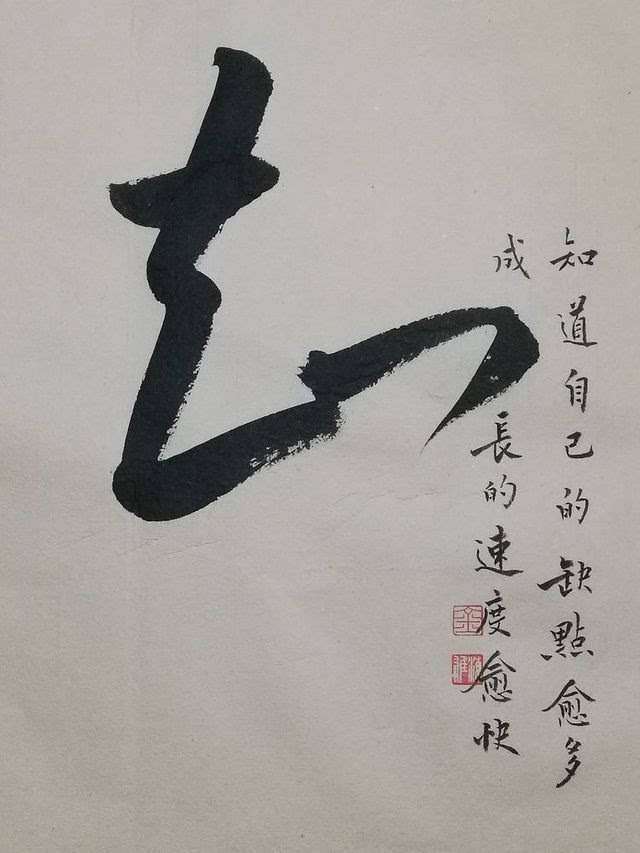 知
知道自己的缺點愈多
成長的速度愈快